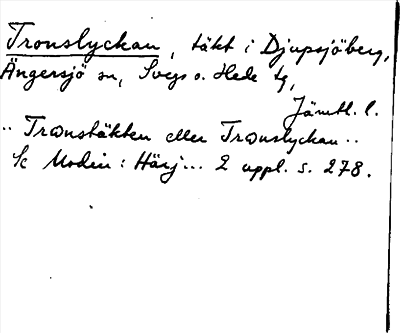 Tronslyckan, täkt i Djupsjöberg,
Ängersjö sn, Svegs o. Hede tg,
Jämtl. l.
"Tronstäkten eller Tronslyckan"
Modin: Härj... 2 uppl. s. 278.